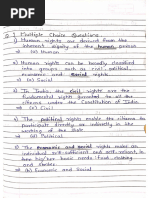 Q.1) Multiple Choice Questions
1) Human rights are derived from the
inherent dignity of the human person
⇒ (a) Human
2) Human rights can be broadly classified
into groups such as civil, political,
economic and Social rights
⇒ (d) Social
3) In India the Civil rights are the
fundamental rights granted to all the
citizens under the Constitution of India
⇒ Civil
4) The political rights enable the citizens to
participate directly or indirectly in the
of the State
⇒ (d) Political
5) The Economic and Social rights make an
individual and
basic needs food, clothing
and shelter.
⇒ (b) Economic and Social